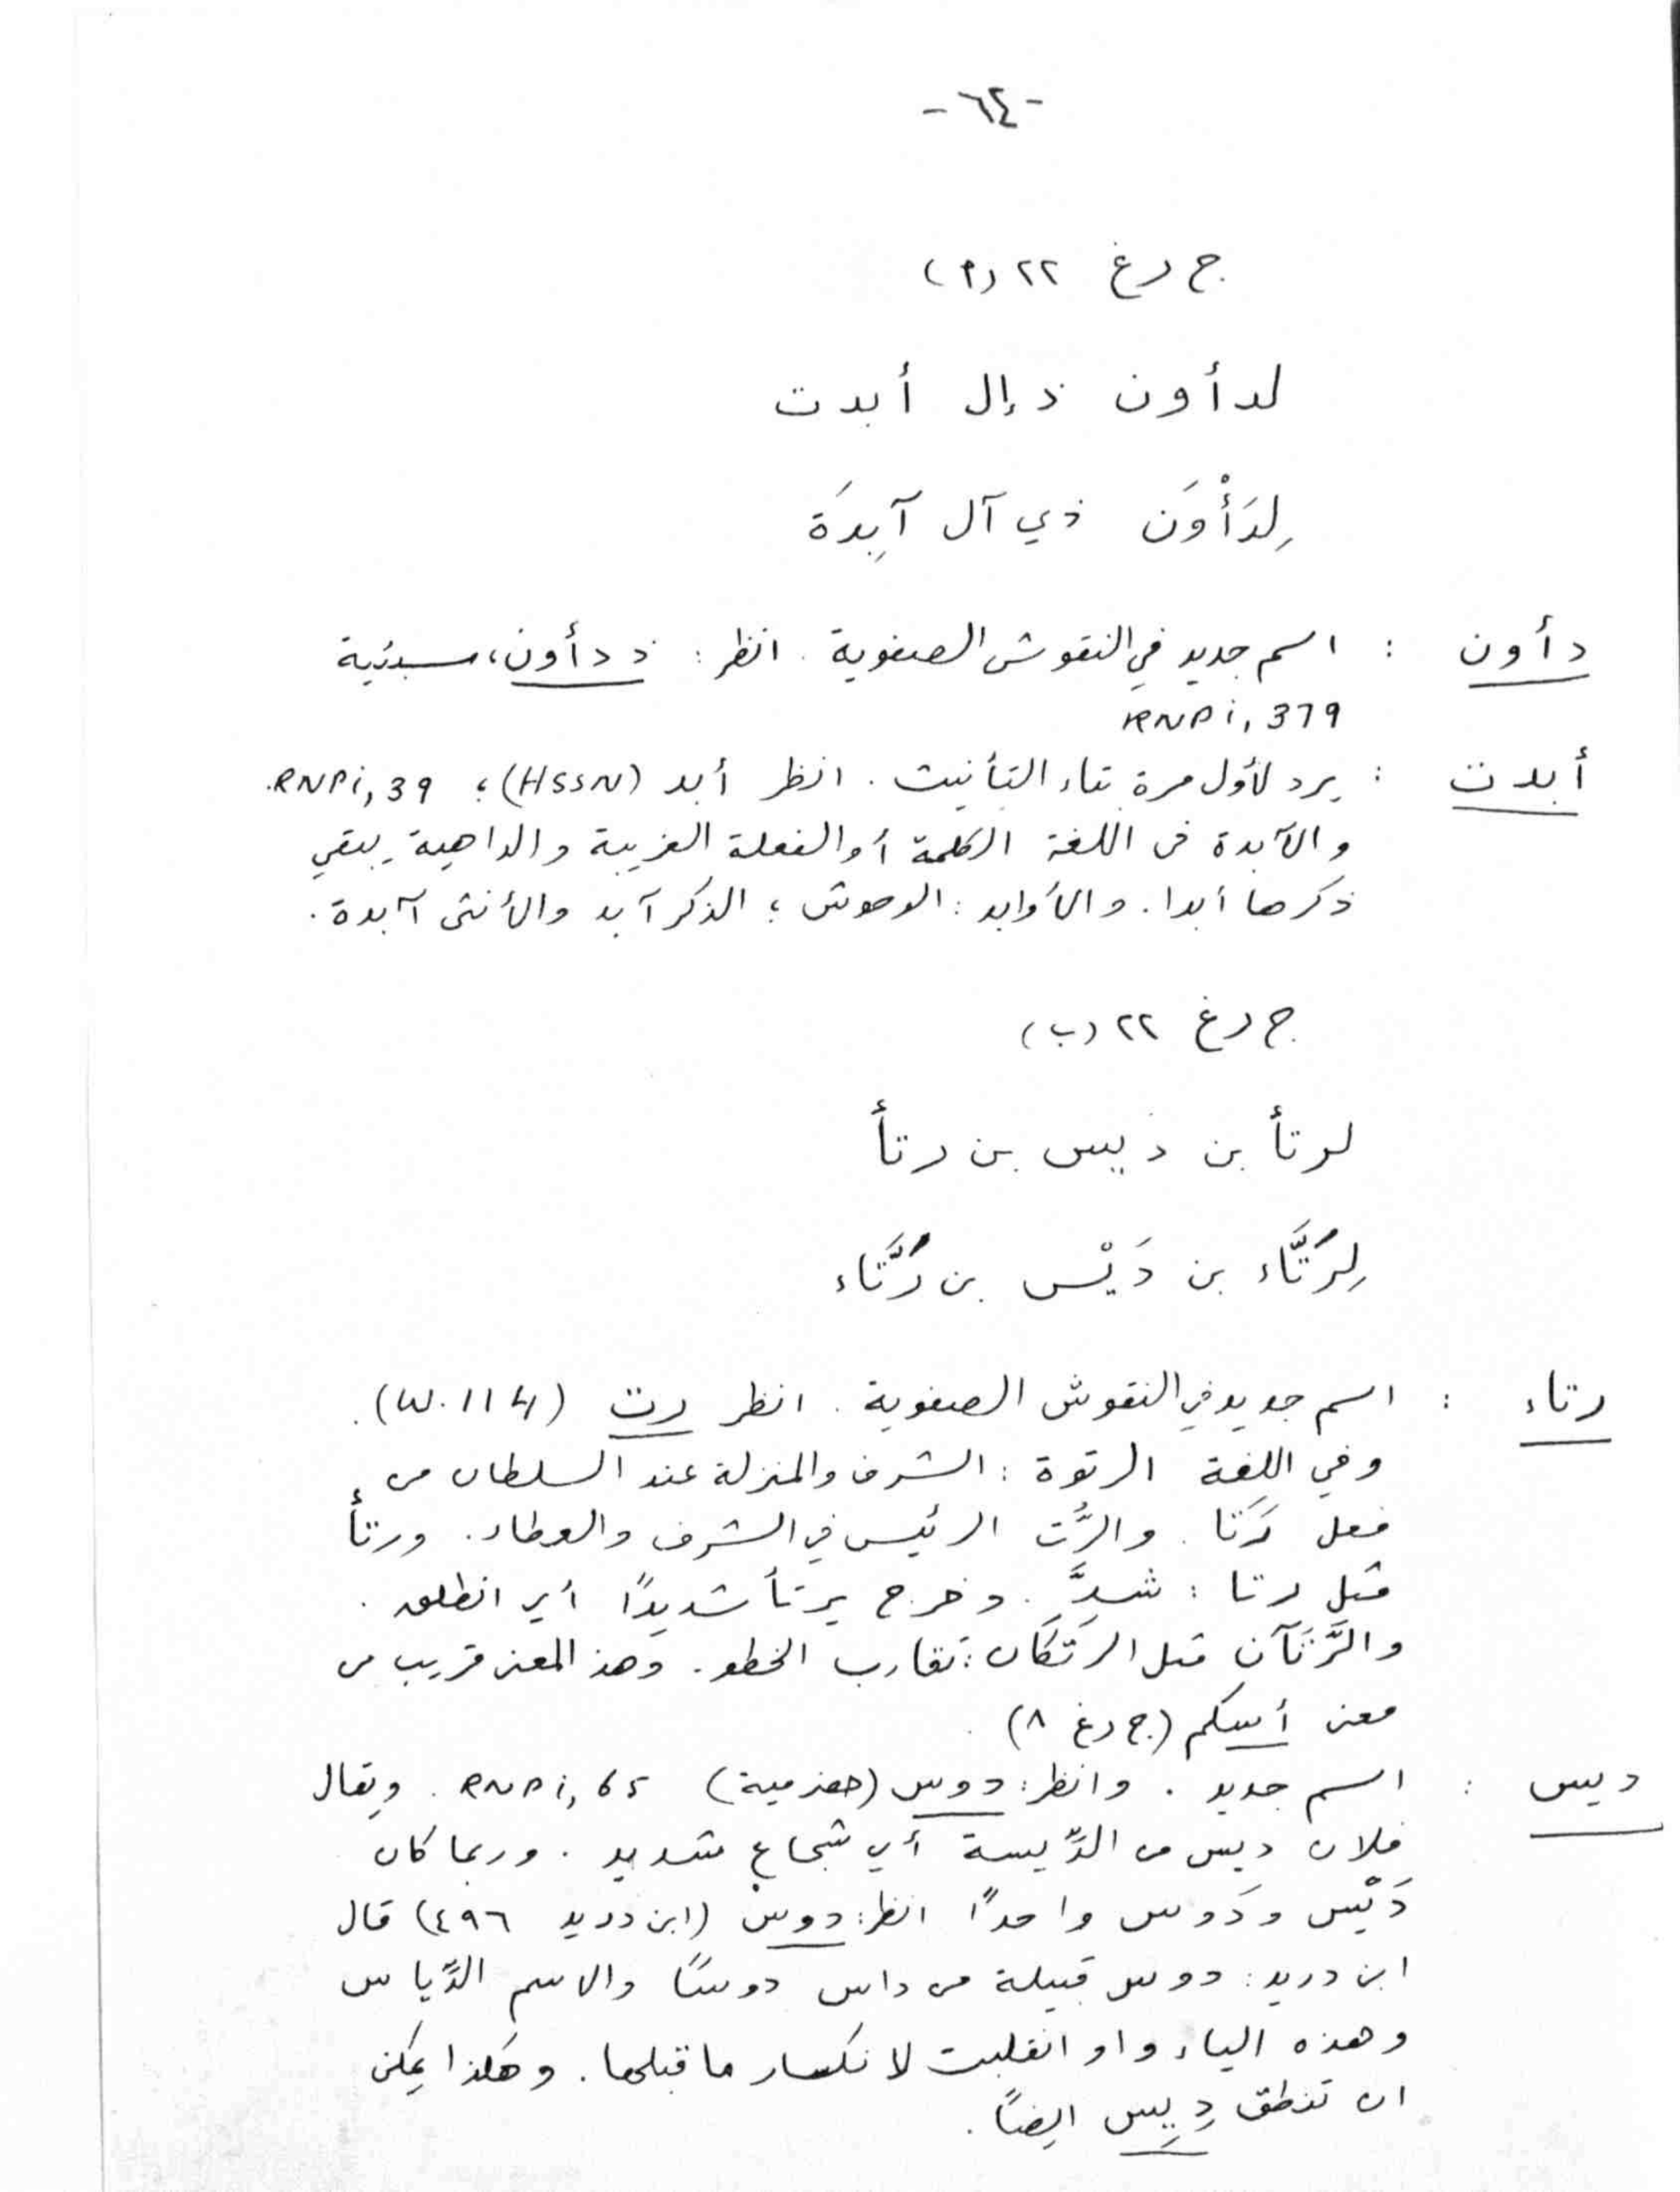 -٦٤-
ج رغ ٢٢ (٩)
لدأون ذ إل أبدت
لِدَأْوَن ذي آل آبِدَة
دأون : اسم جديد في النقوش الصفوية. انظر: ذ دأون، سبئية
RNPi, 379
أبدت : يرد لأول مرة بتاء التأنيث. انظر أبد (HSSN)؛ RNPi, 39.
والآبدة في اللغة الكلمة أو الفعلة الغريبة والداهية يبقي
ذكرها أبدا. والأوابد: الوحوش؛ الذكر آبد والأنثى آبدة.
ج رغ ٢٢ (ب)
لرتأ بن ديس بن رتأ
لِرُتَّاء بن دَيْس بن رُتَّاء
رتاء : اسم جديد في النقوش الصفوية. انظر رت (W. 114).
وفي اللغة الرتوة: الشرف والمنزلة عند السلطان من
فعل رَتَا. والرَّت الرئيس في الشرف والعطاء. ورتأ
مثل رتا: شدَّ. وخرج يرتأ شديدًا أي انطلق.
والرَّتَآن مثل الرتَكَان: تقارب الخطو. وهذ المعنى قريب من
معنى أسكم (ج رغ ٨)
ديس : اسم جديد. وانظر: دوس (حضرمية) RNPi, 65. ويقال
فلان ديس من الدِّيسة أي شجاع شديد. وربما كان
دَيْس ودَوس واحدًا انظر: دوس (ابن دريد ٤٩٦) قال
ابن دريد: دوس قبيلة من داس دوسًا والاسم الدِّياس
وهذه الياء واو انقلبت لانكسار ما قبلها. وهكذا يمكن
ان تنطق دِيِس ايضًا.